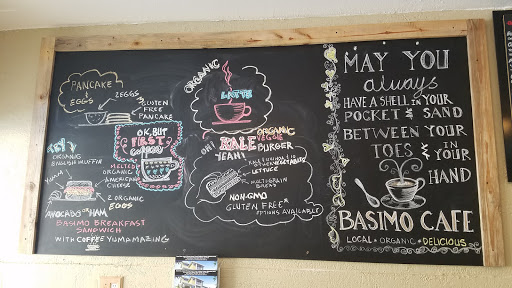 PANCAKE
&
EGGS
2 EGGS
GLUTEN FREE
PANCAKE
OK, BUT
FIRST
COFFEE
ORGANIC
ENGLISH MUFFIN
MELTED
ORGANIC
AMERICAN
CHEESE
YUMM
2 ORGANIC
EGGS
AVOCADO OR HAM
BASIMO BREAKFAST
SANDWICH
WITH COFFEE YUMAMAZING
ORGANIC
LATTE
OH!
KALE
YEAH!
ORGANIC
VEGGIE
BURGER
LETTUCE
MULTI-GRAIN
BREAD
NON-GMO
GLUTEN FREE*
OPTIONS AVAILABLE
MAY YOU
always
HAVE A SHELL IN YOUR
POCKET & SAND
BETWEEN YOUR
TOES & IN YOUR
HAND
BASIMO CAFE
LOCAL * ORGANIC * DELICIOUS